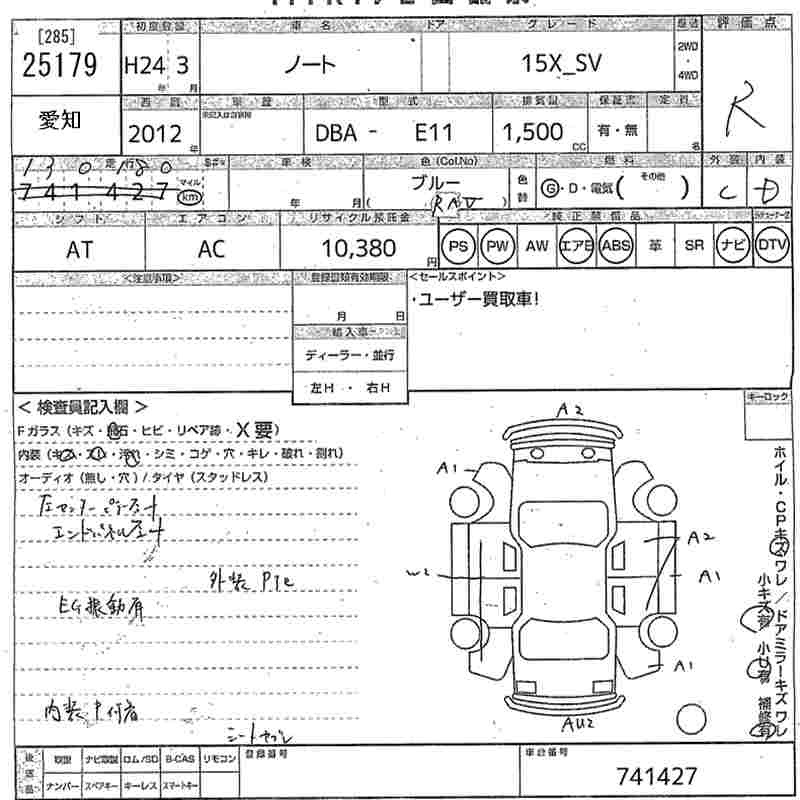 [285]
25179
初度登録 車名 ドア グレード 評価点
H24 3 年 月
ノート
15X_SV
2WD
・
4WD
R
愛知
西暦 車歴 型式 排気量 保証書 定員
2012 年
DBA - E11
1,500 CC
有・無
名
走行 車検 色(Col.No) 燃料 外装 内装
130180
741427
マイル
km
年 月
ブルー
RAV
( )
色替
G・D・電気( その他 )
C D
シフト エアコン リサイクル預託金 純正装備品
AT AC 10,380 円
PS PW AW エアB ABS 革 SR ナビ DTV
<注意事項> 登録書類有効期限 <セールスポイント>
・ユーザー買取車!
月 日
輸入車
ディーラー・並行
左H ・ 右H
キーロック
< 検査員記入欄 >
Fガラス (キズ・飛石・ヒビ・リペア跡・X要)
内装 (キズ・スレ・汚れ・シミ・コゲ・穴・キレ・破れ・割れ)
オーディオ (無し・穴) / タイヤ (スタッドレス)
左センターピラー
エンドパネル
外装 P12
EG振動有
内装
シート
A2
A1
A2
W2
A1
A1
AU2
ホイル・CPキズワレ/ドアミラーキズワレ
小キズ有 小U有 補修有
後送品
取説 ナビ取説 ロム/SD B-CAS リモコン
ナンバー スペアキー キーレス スマートキー
登録番号
車台番号
741427